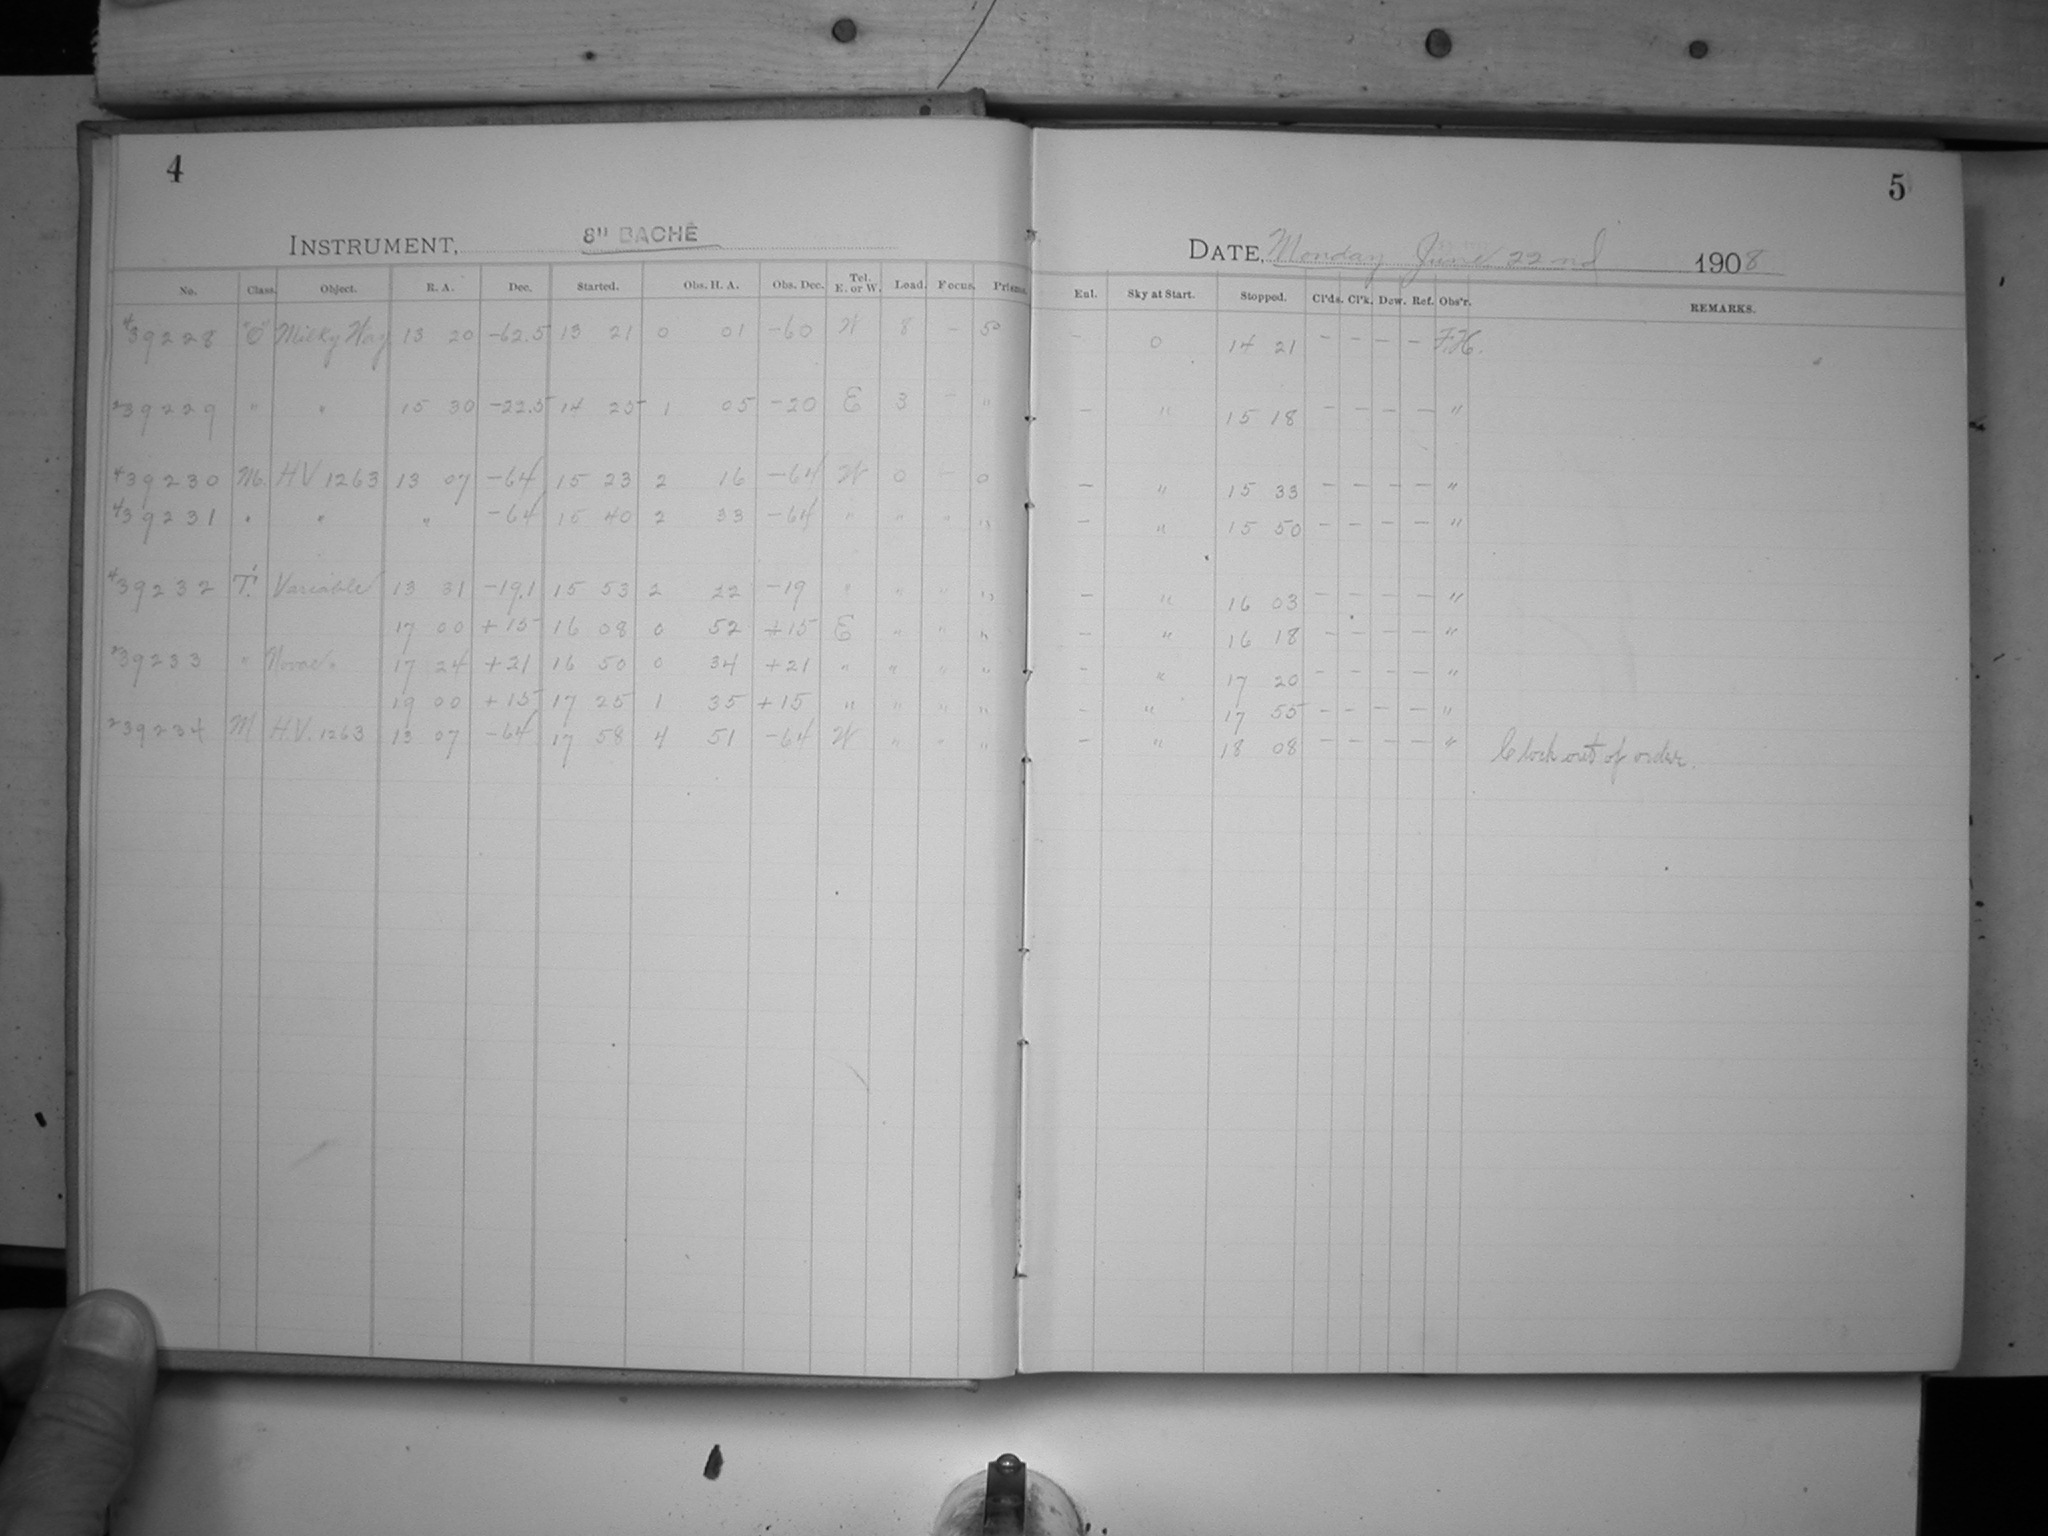 4
INSTRUMENT, 8" BACHE
No. Class. Object. R. A. Dec. Started. Obs. H. A. Obs. Dec. Tel. E. or W. Load. Focus. Prisms.
39228 "O" Milky Way 13 20 -62.5 13 21 0 01 -60 W 8 - 50
39229 " " 15 30 -22.5 14 25 1 05 -20 E 3 - "
39230 M. HV 1263 13 07 -64 15 23 2 16 -64 W 0 - 0
39231 " " " -64 15 40 2 33 -64 " " " "
39232 T. Variable 13 31 -19.1 15 53 2 22 -19 " " " "
17 00 +15 16 08 0 52 +15 E " " "
39233 " " 17 24 +21 16 50 0 34 +21 " " " "
19 00 +15 17 25 1 35 +15 " " " "
39234 M H.V. 1263 13 07 -64 17 58 4 51 -64 W " " "
5
DATE, Monday June 22nd 1908
Enl. Sky at Start. Stopped. Cl'ds. Cl'k. Dew. Ref. Obs'r. REMARKS.
- 0 14 21 - - - - F.H.
- " 15 18 - - - - "
- " 15 33 - - - - "
- " 15 50 - - - - "
- " 16 03 - - - - "
- " 16 18 - - - - "
- " 17 20 - - - - "
- " 17 55 - - - - "
- " 18 08 - - - - " Clock out of order.